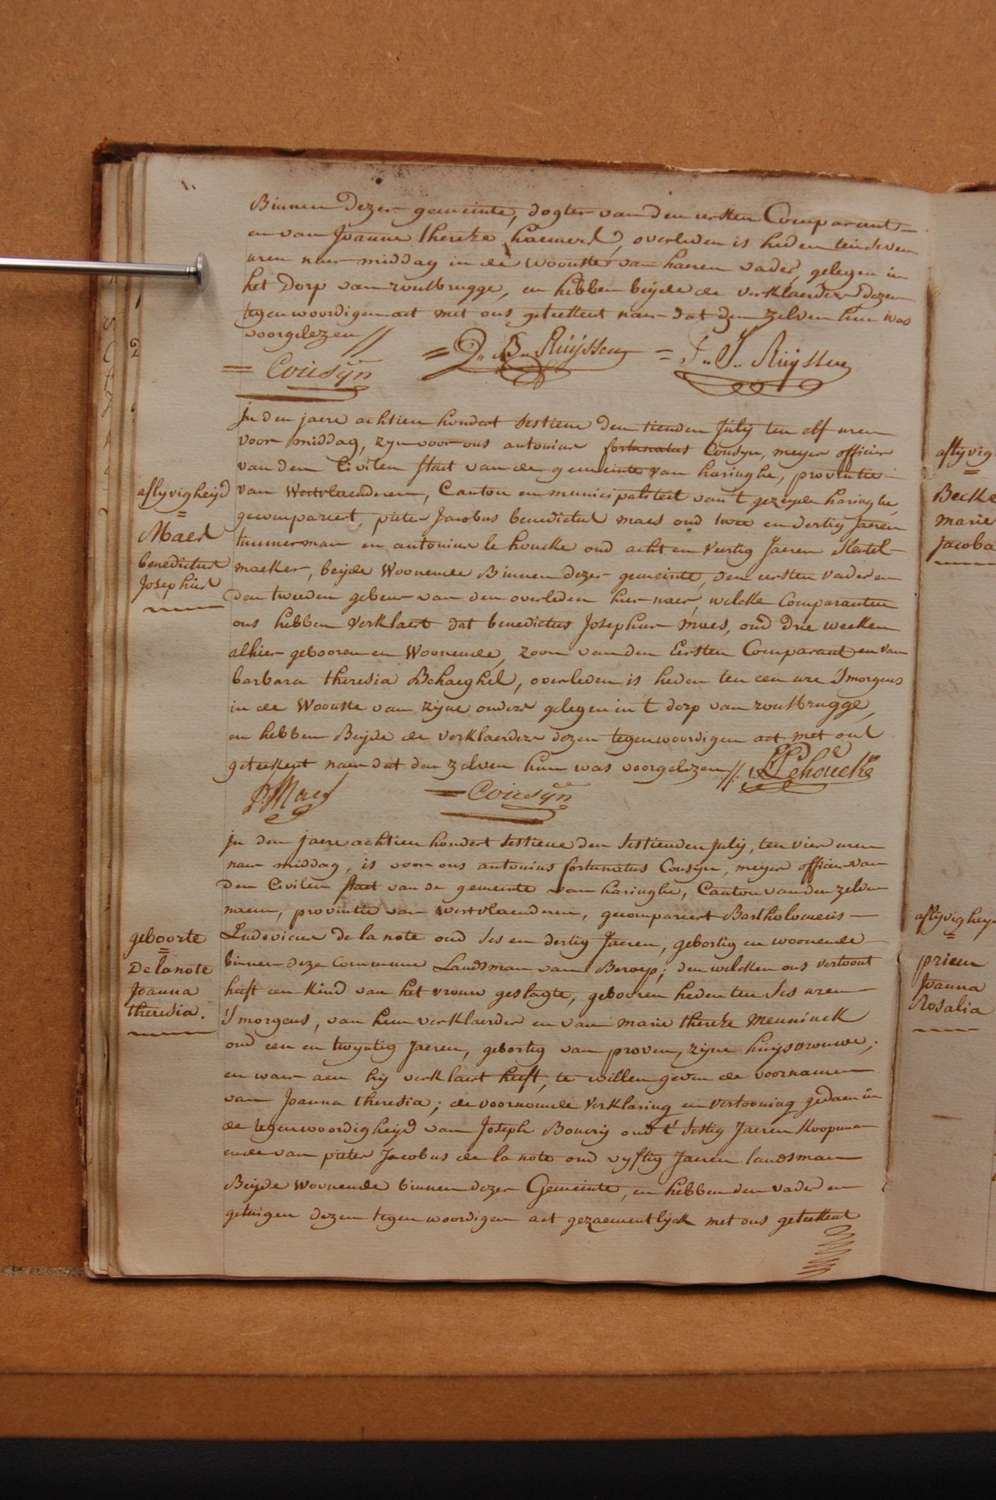 Binnen dezer gemeinte, dogter van den eersten Comparant
en van Joanne thereze haewerd, overleden is heden ten seven
uren naer middag in de Woonste van haeren vader gelegen in
het Dorp van rousbrugge, en hebben beijde de verklaerders dezen
tegenwoordigen act met ons geteekent naer dat den zelven hun was
voorgelezen //
= Cousijn = B. Ruijssen = J. J. Ruijssen
In den jaere achtien hondert sestiene den tienden Julij ten elf uren
voor middag, zijn voor ons antonius fortunatus Cousyn, meyer officier
van den Civilen staet van de gemeinte van haringhe, provintie
van Westvlaenderen, Canton en municipaliteit van 't gezeyde haringhe,
gecompariert, pieter Jacobus benedictus maes oud twee en dertig Jaeren
timmerman en antonius le houcke oud acht en veertig Jaeren Slotel-
maeker, beijde Woonende Binnen dezer gemeinte, den eersten vader en
den tweeden gebeur van den overleden hier naer, welcke Comparanten
ons hebben verklaert dat benedictus Josephus maes, oud drie weeken
alhier gebooren en Woonende, zoon van den Eersten Comparant en van
barbara theresia Behaeghel, overleden is heden ten een ure s'morgens
in de Woonste van zijne ouders gelegen in 't dorp van rousbrugge,
en hebben Beijde de verklaerders dezen tegenwoordigen act met ons
geteekent naer dat den zelven hun was voorgelezen //. Lehoucke
P. Maes = Cousijn
aflyvigheijd
=
Maes
benedictus
Josephus
In den jaere achtien hondert sestiene den sestienden Julij, ten vier uren
naer middag, is voor ons antonius fortunatus Cousyn, meyer officier van
den Civilen staet van de gemeinte van haringhe, Canton van den zelven
naem, provintie van westvlaenderen, gecompariert Bartholomeus
Ludovicus de la note oud ses en dertig Jaeren, gebortig en woonende
binnen deze Commune Landsman van Beroep; den welcken ons vertoont
heeft een Kind van het vrouw geslagte, gebooren heden ten ses uren
s'morgens, van hem verklaerder en van marie thereze Meuninck
oud een en twyntig Jaeren, gebortig van proven, zijne huijsvrouwe,
en waer aen hij verklaert heeft, te willen geven de voornamen
van Joanna theresia; de voornoemde verklaring en vertooning gedaen in
de tegenwoordigheijd van Joseph Bouery oud 't sestig Jaeren Koopman
ende van pieter Jacobus de la note oud vyftig Jaeren landsman
Beijde Woonende binnen dezer Gemeinte, en hebben den vader en
getuigen dezen tegenwoordigen act gezaementlijck met ons geteekent
geboorte
=
De la note
Joanna
theresia.
aflyvig
=
Becke
marie
Jacoba
aflyvighey
=
prieem
Joanna
Rosalia